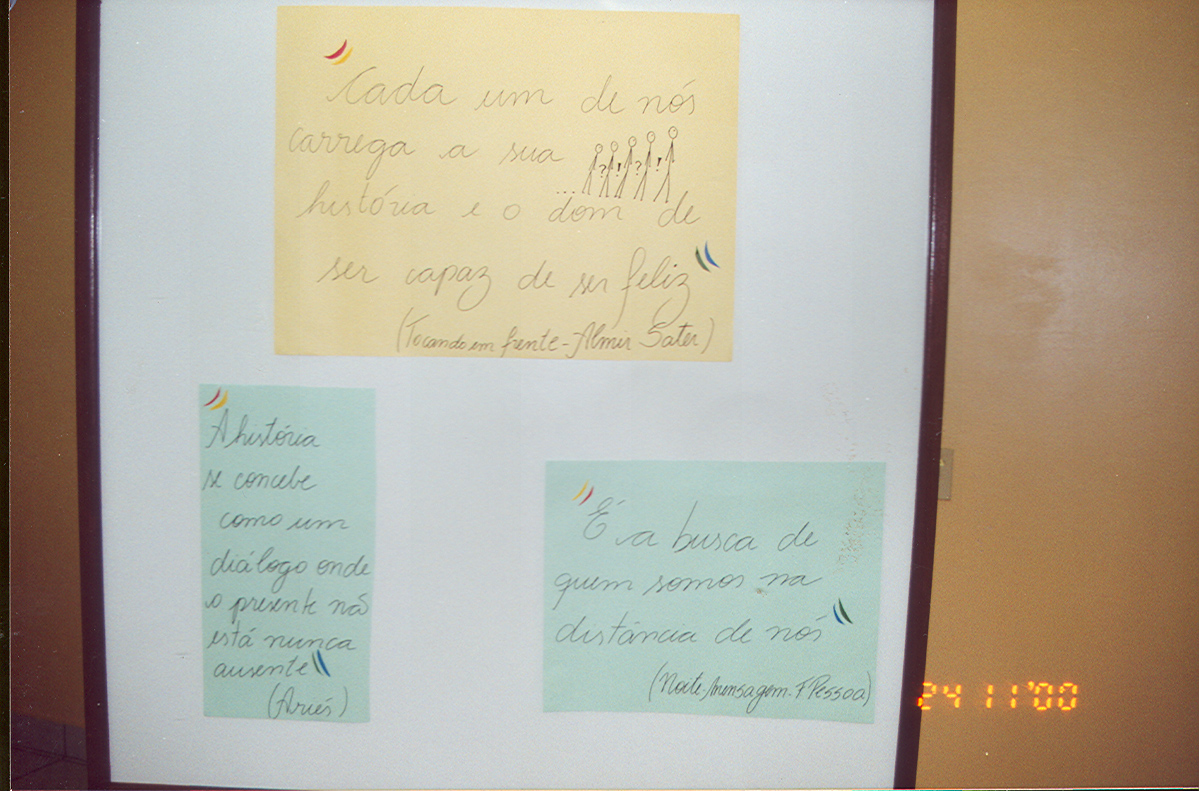 "Cada um de nós
carrega a sua
?!?!
...
história e o dom de
ser capaz de ser feliz"
(Tocando em frente - Almir Sater)
"A história
se concebe
como um
diálogo onde
o presente não
está nunca
ausente"
(Ariés)
"É a busca de
quem somos na
distância de nós"
(Noite-mensagem. F Pessoa)
24 11'00